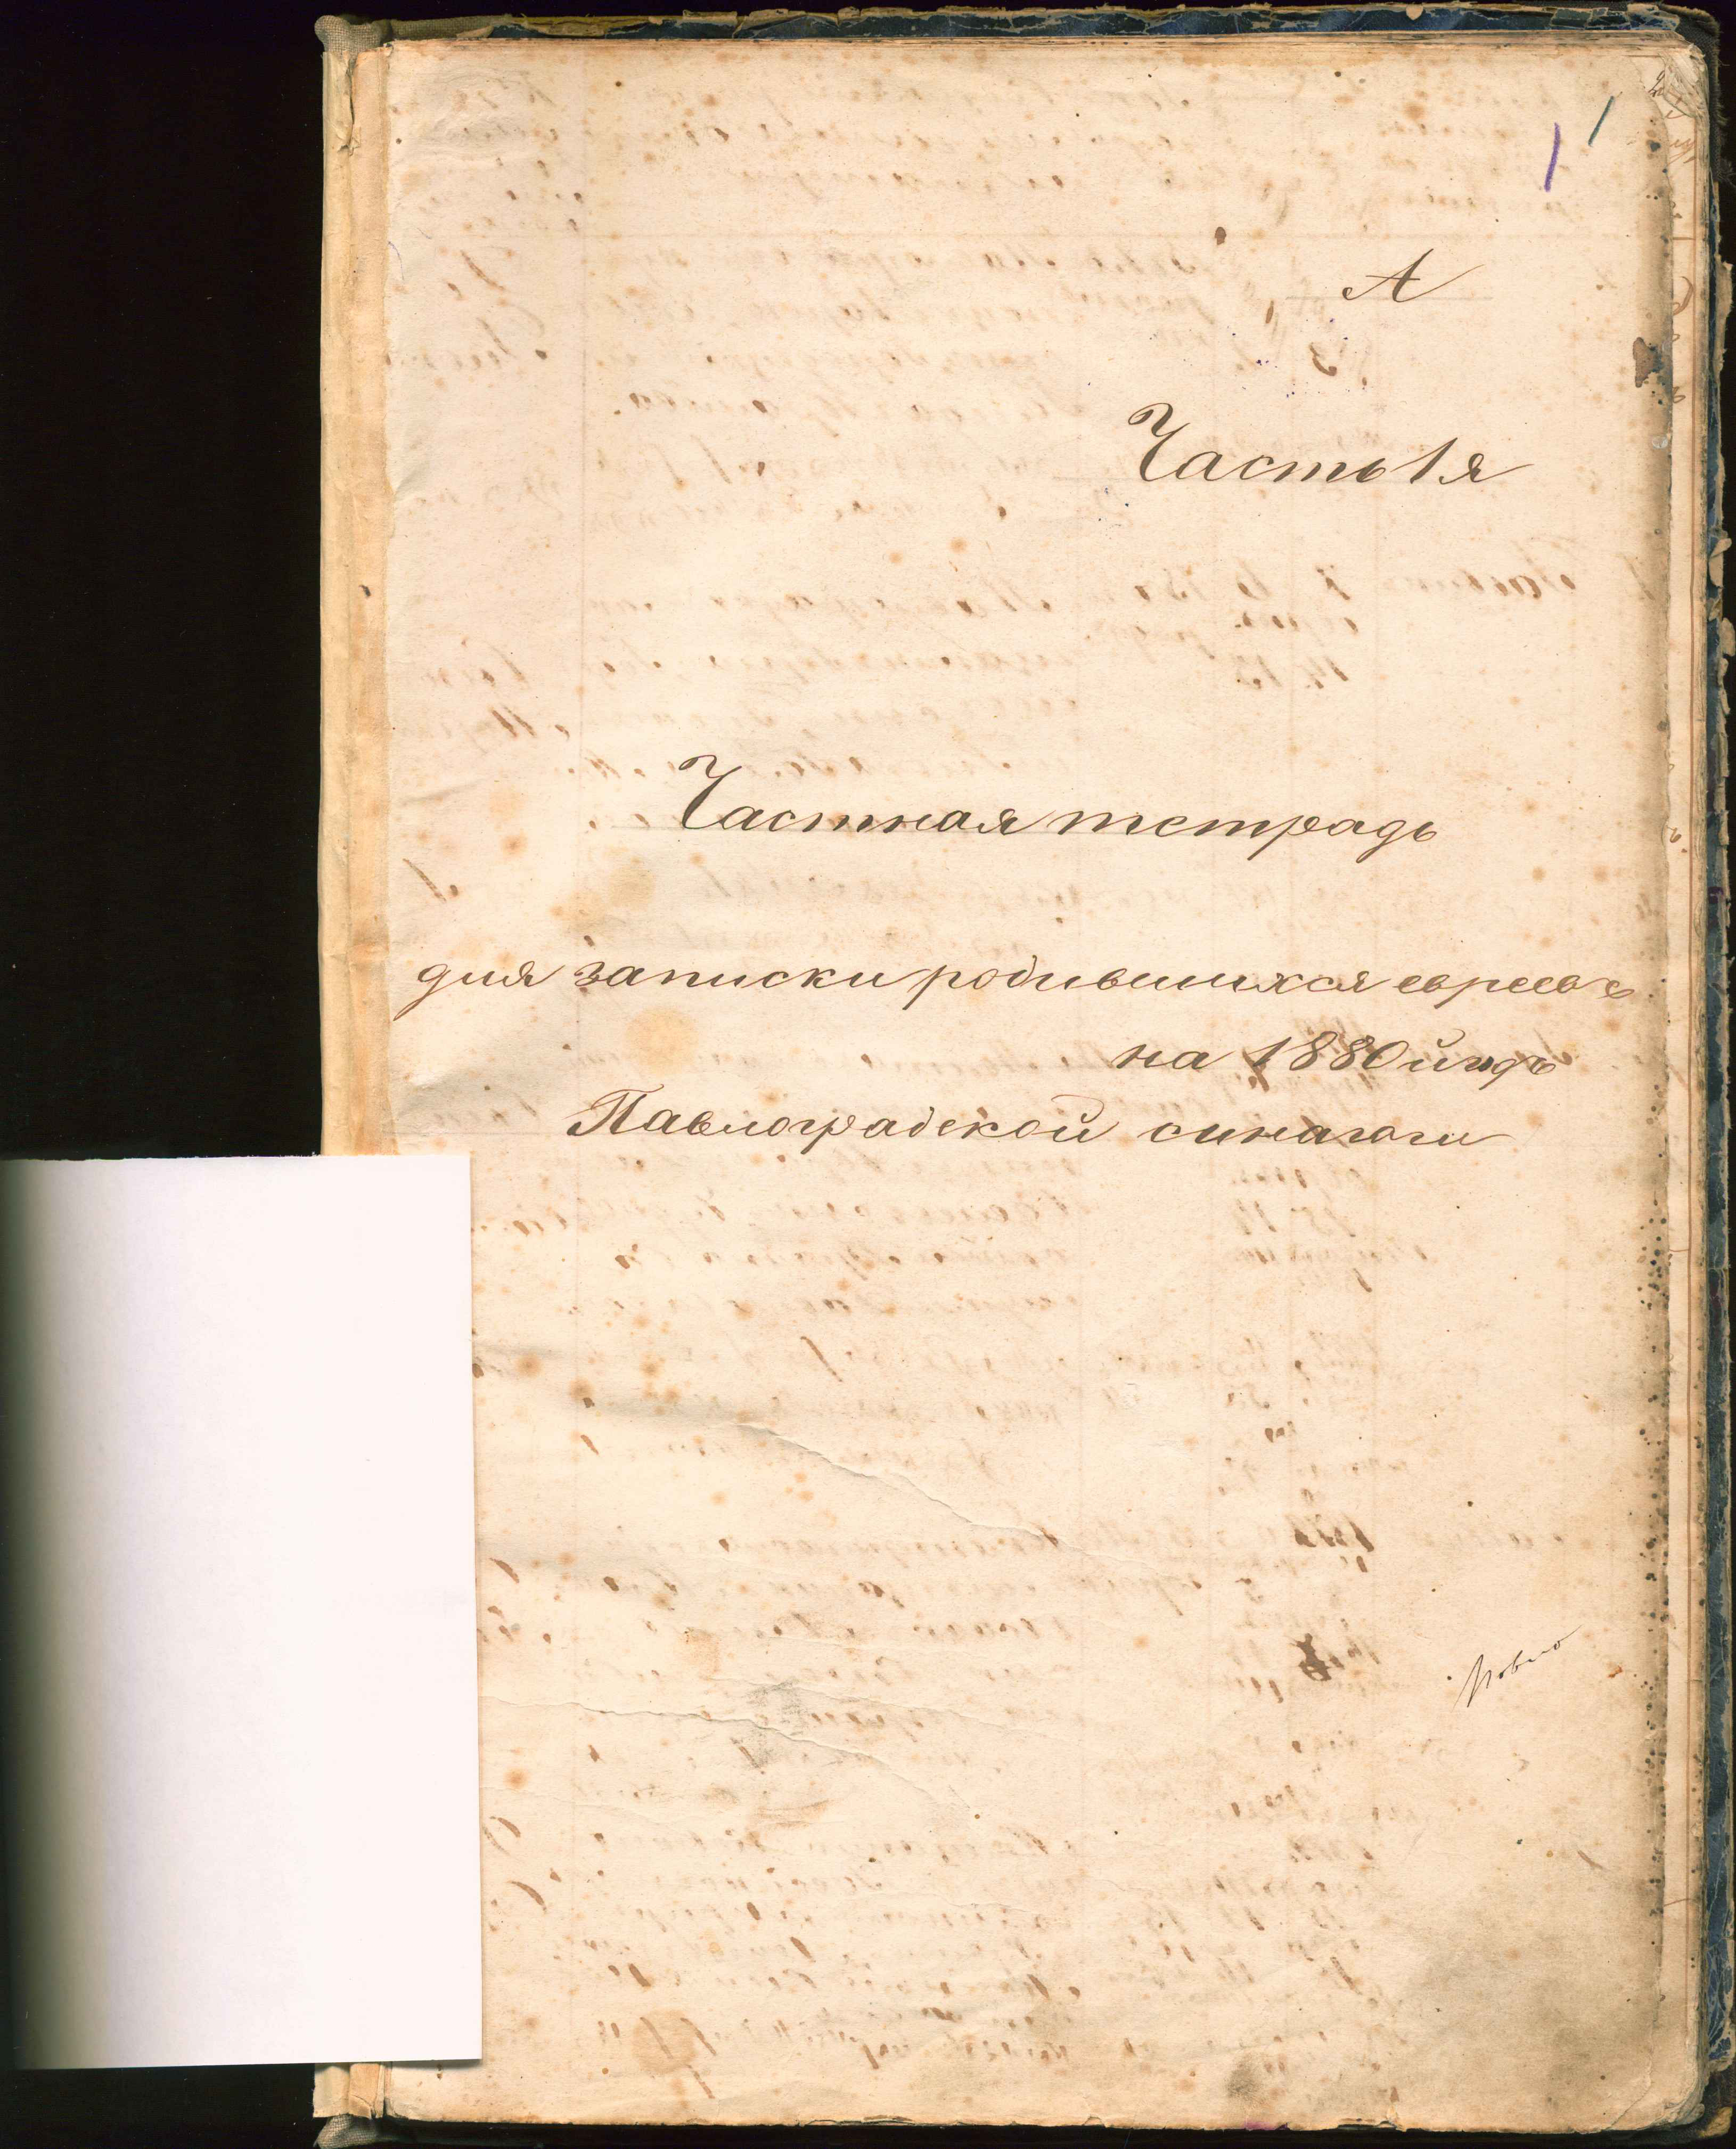 А
Часть 1я
Частная тетрадь
для записки родившихся евреевъ
на 1880й годъ
Павлоградской синагоги